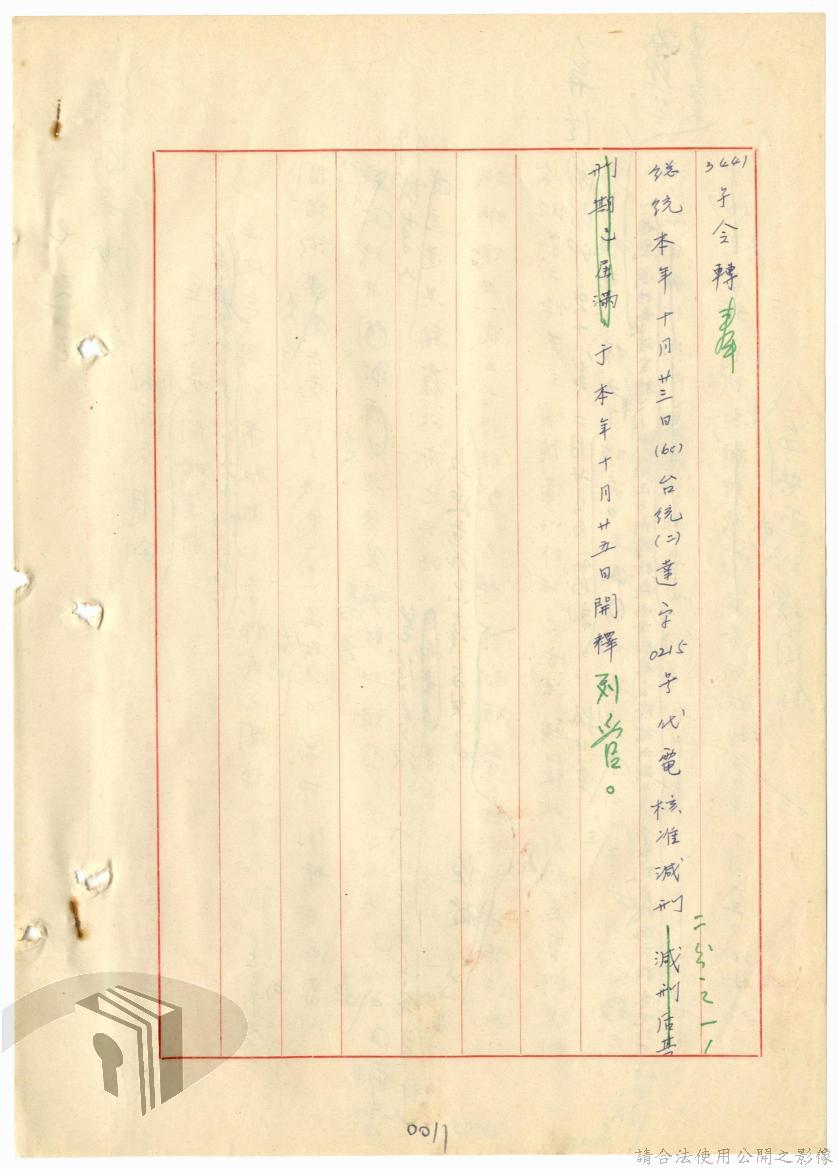 3441字令轉奉
總統本年十月廿三日(60)台統(二)達字0215号代電核准減刑二分之一,減刑后其
刑期已屆滿,于本年十月廿五日開釋列管。
0011
請合法使用公開之影像